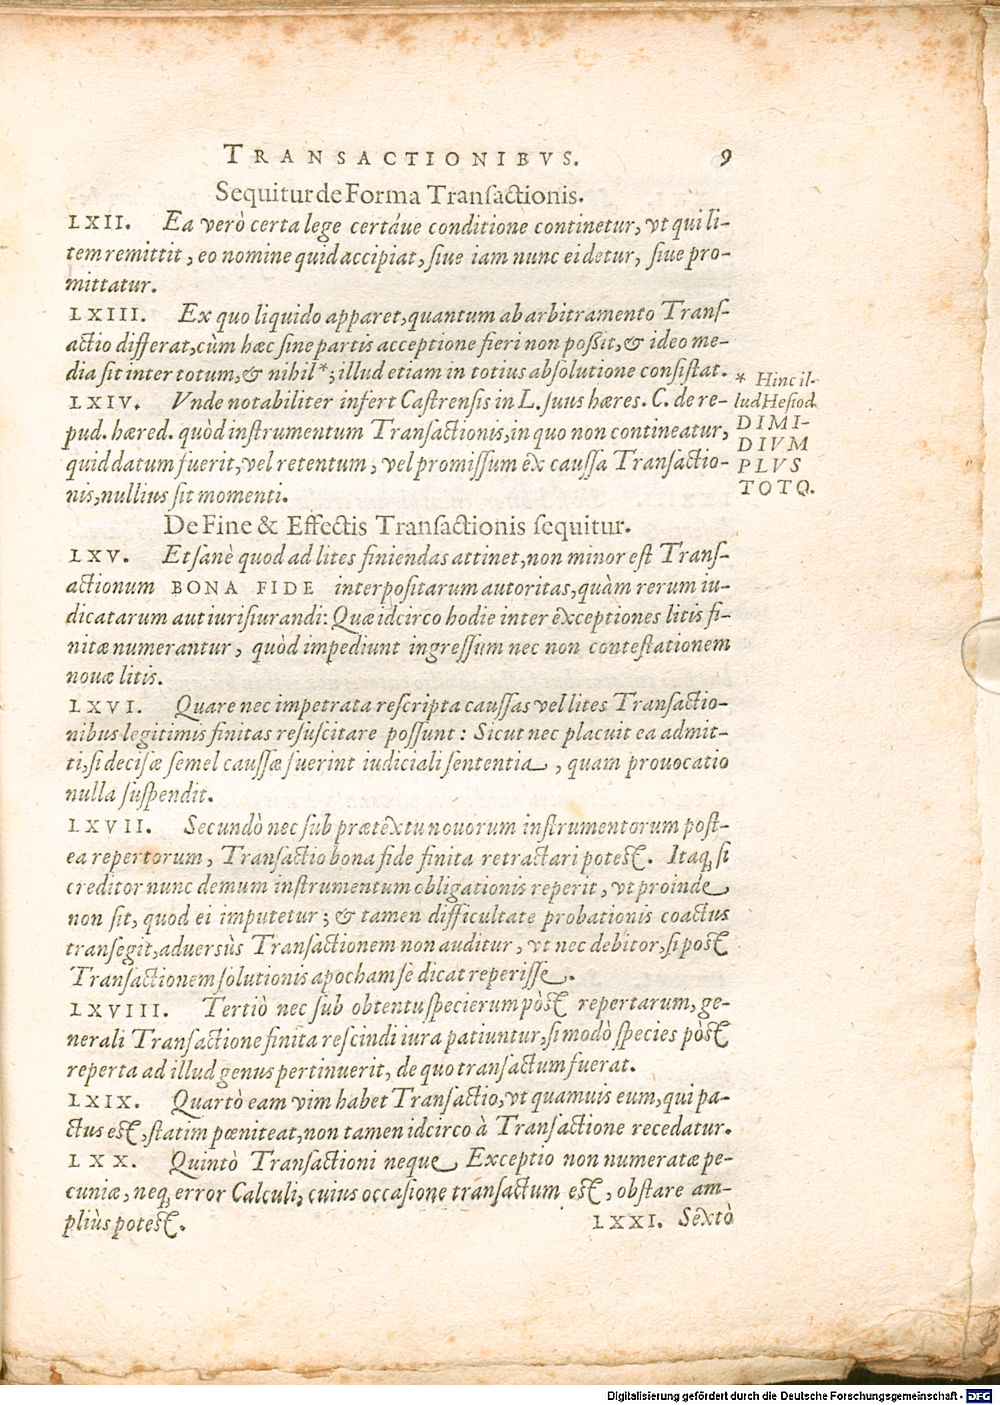 TRANSACTIONIBVS. 9
Sequitur de Forma Transactionis.
LXII. Ea verò certa lege certáue conditione continetur, vt qui li-
tem remittit, eo nomine quid accipiat, siue iam nunc ei detur, siue pro-
mittatur.
LXIII. Ex quo liquido apparet, quantum ab arbitramento Trans-
actio differat, cùm hæc sine partis acceptione fieri non possit, & ideo me-
dia sit inter totum, & nihil*; illud etiam in totius absolutione consistat.
LXIV. Vnde notabiliter infert Castrensis in L. suus hæres. C. de re-
pud. hæred. quòd instrumentum Transactionis, in quo non contineatur,
quid datum fuerit, vel retentum, vel promissum ex caussa Transactio-
nis, nullius sit momenti.
* Hinc il-
lud Hesiod.
DIMI-
DIVM
PLVS
TOTO.
De Fine & Effectis Transactionis sequitur.
LXV. Et sanè quod ad lites finiendas attinet, non minor est Trans-
actionum BONA FIDE interpositarum autoritas, quàm rerum iu-
dicatarum aut iurisiurandi: Quæ idcirco hodie inter exceptiones litis fi-
nitæ numerantur, quòd impediunt ingressum nec non contestationem
nouæ litis.
LXVI. Quare nec impetrata rescripta caussas vel lites Transactio-
nibus legitimis finitas resuscitare possunt: Sicut nec placuit ea admit-
ti, si decisæ semel caussæ fuerint iudiciali sententia, quam prouocatio
nulla suspendit.
LXVII. Secundò nec sub prætextu nouorum instrumentorum post-
ea repertorum, Transactio bona fide finita retractari potest. Itaq; si
creditor nunc demum instrumentum obligationis reperit, vt proinde
non sit, quod ei imputetur; & tamen difficultate probationis coactus
transegit, aduersùs Transactionem non auditur, vt nec debitor, si post
Transactionem solutionis apocham se dicat reperisse.
LXVIII. Tertiò nec sub obtentu specierum pòst repertarum, ge-
nerali Transactione finita rescindi iura patiuntur, si modò species pòst
reperta ad illud genus pertinuerit, de quo transactum fuerat.
LXIX. Quartò eam vim habet Transactio, vt quamuis eum, qui pa-
ctus est, statim pœniteat, non tamen idcirco à Transactione recedatur.
LXX. Quintò Transactioni neque Exceptio non numeratæ pe-
cuniæ, neq; error Calculi, cuius occasione transactum est, obstare am-
pliùs potest.
LXXI. Sextò
Digitalisierung gefördert durch die Deutsche Forschungsgemeinschaft - DFG